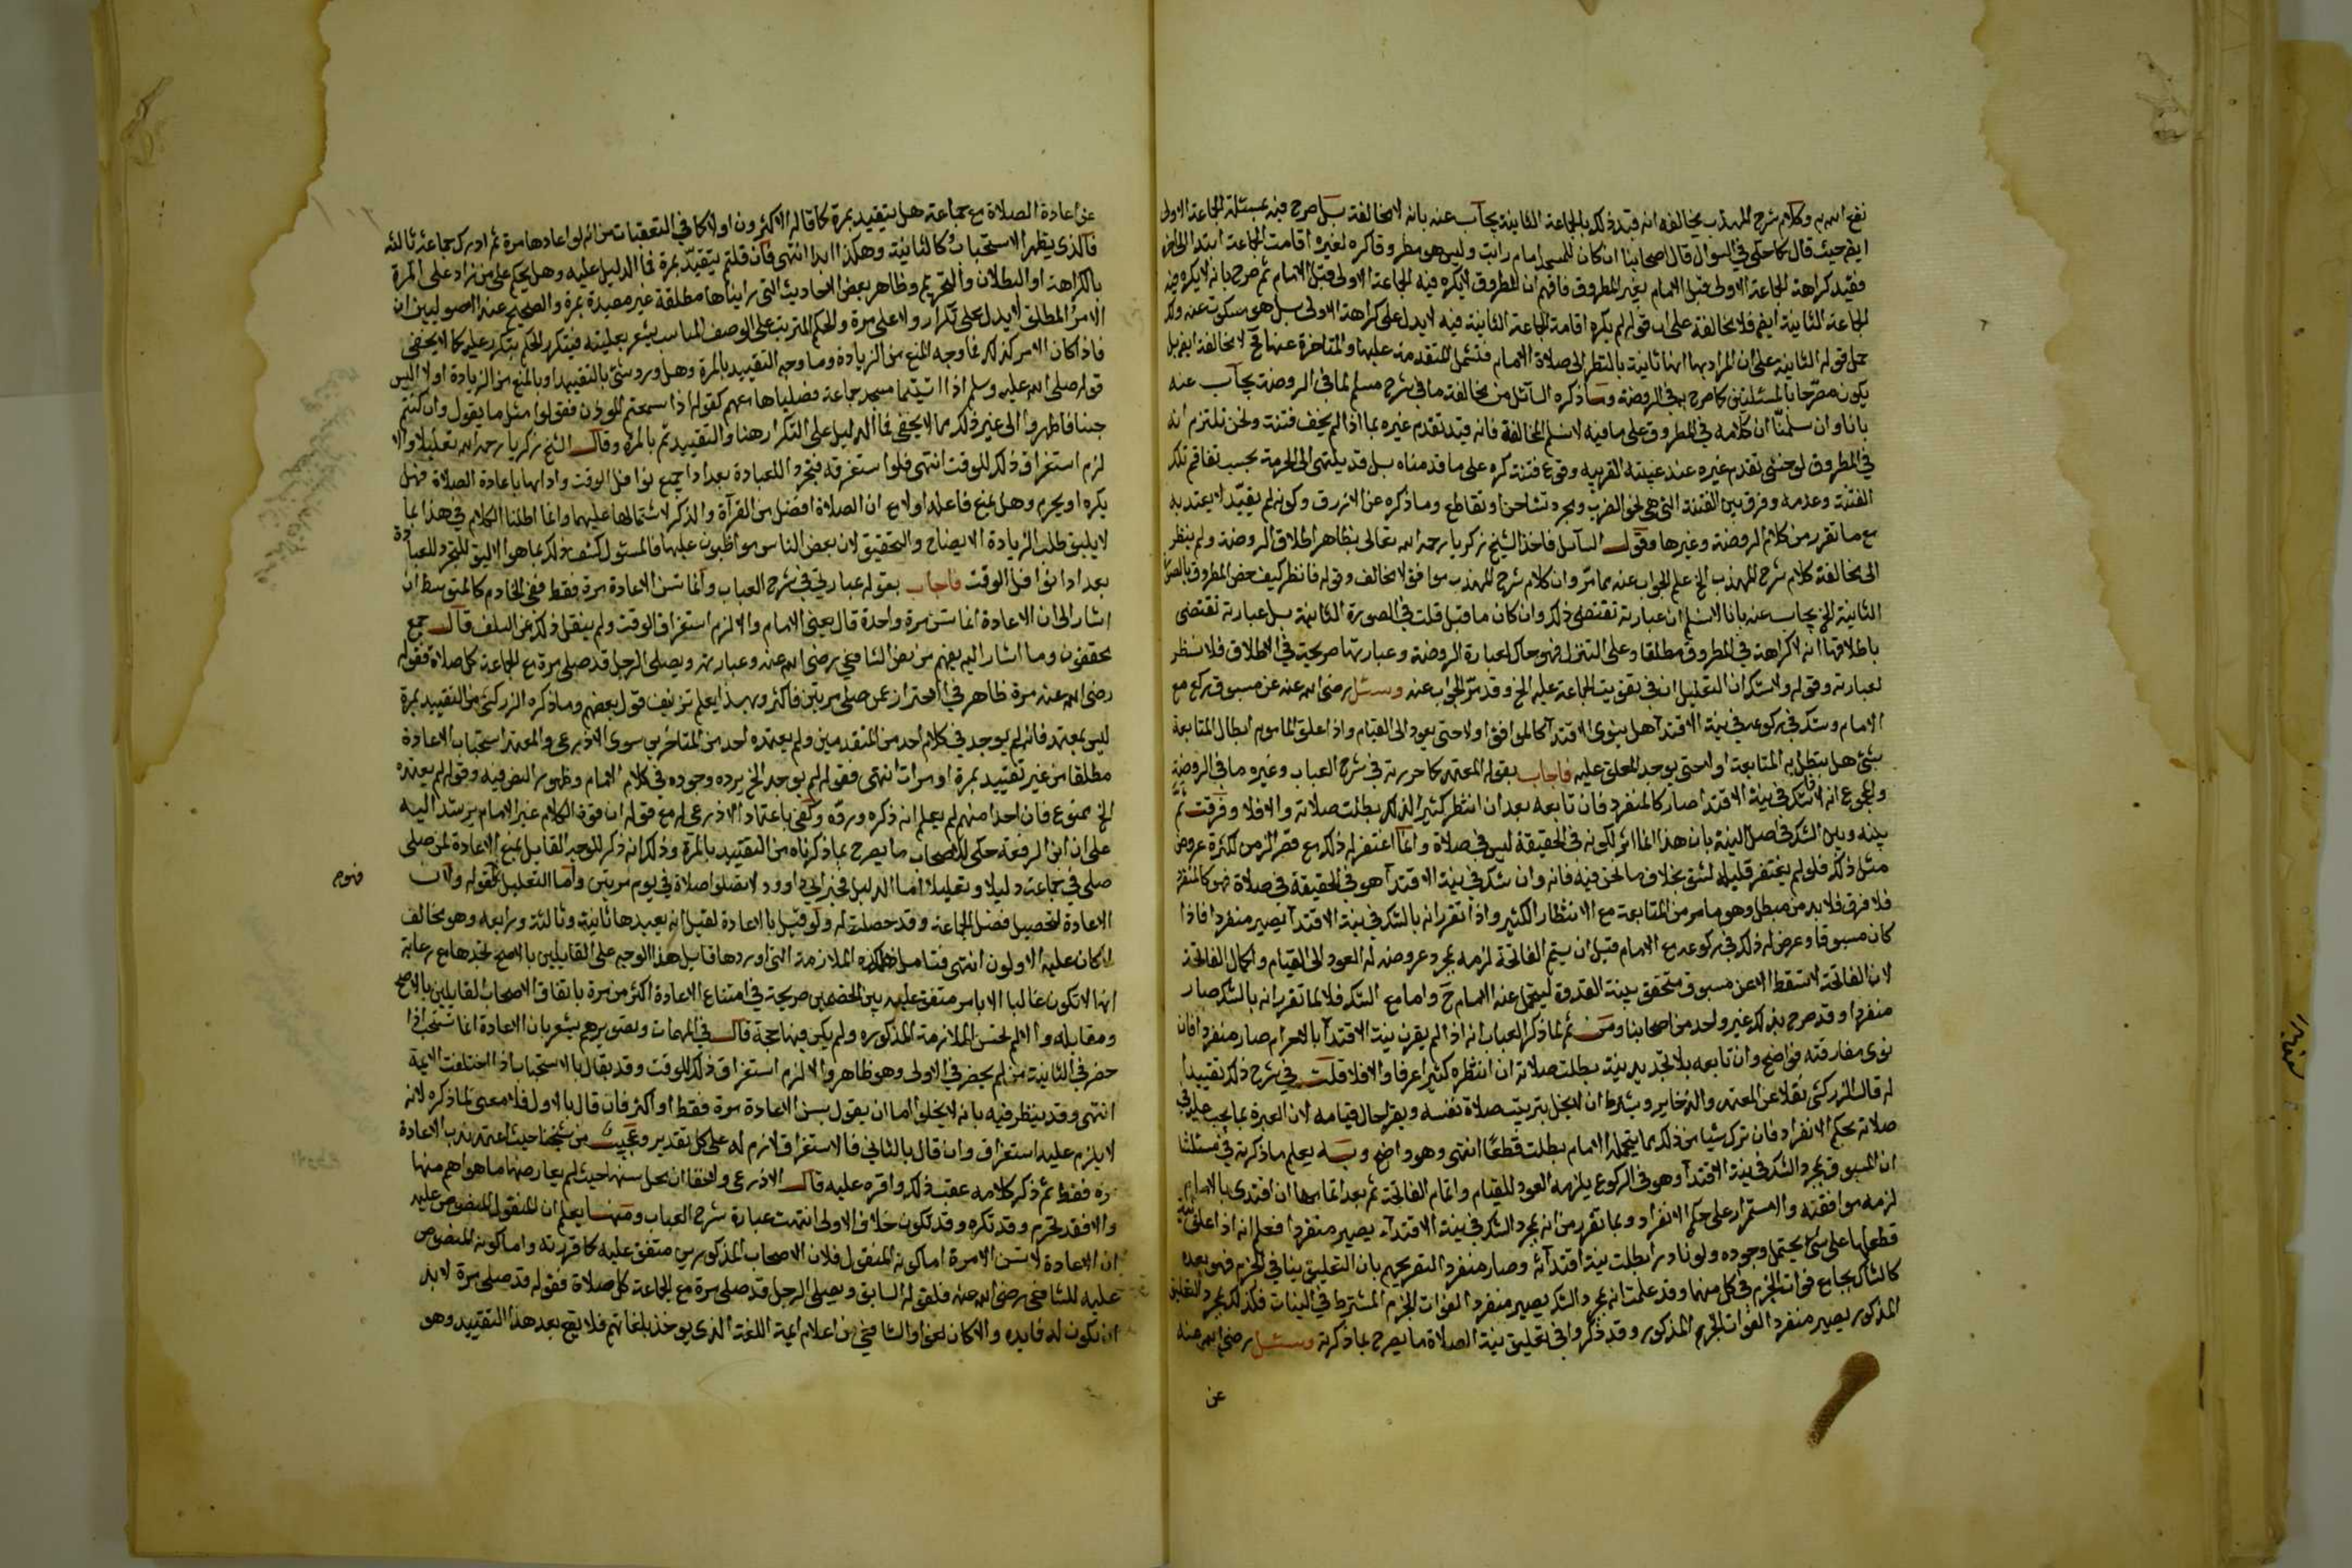 نفع الله به وكلام شرح المهذب يخالفه انه قيد ذلك بالجماعة الثانية يجاب عنه بانه لا يخالفه بل صرح فيه بمسئلة الجماعة الاولى
ايضا حيث قال كما حكى في السوال قال اصحابنا ان كان للمسجد امام راتب وليس هو مطروقا كره لغيره اقامت الجماعة ابتدا
فقيد كراهة الجماعة الاولى قبل الامام بغير المطروق فافهم ان المطروق لا يكره فيه الجماعة الاولى قبل الامام ثم صرح بانه لا يكره فيه
الجماعة الثانية ايضا فلا مخالفة على ان قوله لم يكره اقامة الجماعة الثانية فيه لا يدل على كراهة الاولى بل هو سكوت عنه ولك
حمل قوله الثانية على ان المراد بها انها ثانية بالنظر الى صلاة الامام فتشمل المتقدمة عليها والمتاخرة عنها فح لا مخالفة ايضا بل
يكون مصرحا بالمسئلتين كما صرح بهما في الروضة وما ذكره السائل من مخالفة ما في شرح مسلم لما في الروضة يجاب عنه
بانا وان سلمنا ان كلامه في المطروق على ما فيه لا نسلم المخالفة فانه قيد تقدم غيره بما اذا لم يخف فتنة ونحن نلتزم انه
في المطروق لو خشى تقدم غيره عند غيبته القريبه وقوع فتنة كره على ما قدمناه بل قد ينتهى الى الحرمة بحسب تفاقم تلك
الفتنة وعدمه وفرق بين الفتنة التي هي نحو الضرب ومجرد تشاحن وتقاطع وما ذكره عن الازرق وكونه لم يقيد لا يعتد به
مع ما تقرر من كلام الروضة وغيرها وقول السائل فاخذ الشيخ زكريا رحمه الله تعالى بظاهر اطلاق الروضة ولم ينظر
الى مخالفة كلام شرح المهذب الخ علم الجواب عنه مما مر وان كلام شرح المهذب موافق لا مخالف وقوله فانظر كيف خص المطروق بالصورة
الثانية الخ يجاب عنه بانا لا نسلم ان عبارته تقتضى ذلك وان كان ما قبل قلت في الصورة الثانية بل عبارته تقتضى
باطلاقها انه لا كراهة في المطروق مطلقا وعلى التنزل فهو حاك لعبارة الروضة وعبارتها صريحة في الاطلاق فلا نظر
لعبارته وقوله ولا شك ان التعليل انه في تفويت الجماعة عليه الخ وقد مر الجواب عنه وسئل رضى الله عنه عن مسبوق ركع مع
الامام وشك في ركوعه في نية الاقتدا هل ينوى الاقتدا كالموافق او لا حتى يعود الى القيام واذا علق الماموم ابطال المتابعة
بشئ هل تبطل به المتابعة او لا حتى يوجد المعلق عليه فاجاب بقوله المعتمد كما حررته في شرح العباب وغيره ما في الروضة
والمجموع انه لو شك في نية الاقتدا صار كالمنفرد فان تابعه بعد ان انتظر كثيرا لذلك بطلت صلاته والا فلا وفرقت ثم
بينه وبين الشك في اصل النية بان هذا انما اثر لكونه في الحقيقة ليس في صلاة وانما اغتفر له ذلك مع قصر الزمن لكثرة عروض
مثل ذلك فلو لم يغتفر قليله لشق بخلاف ما نحن فيه فانه وان شك في نية الاقتدا هو في الحقيقة في صلاة فهو كالمنفرد
فلا فرق فلا بد من مبطل وهو ما مر من المتابعة مع الانتظار الكثير واذا تقرر انه بالشك في نية الاقتدا يصير منفردا فاذا
كان مسبوقا وعرض له ذلك في ركوعه مع الامام قبل ان يتم الفاتحة لزمه بمجرد عروضه له العود الى القيام واكمال الفاتحة
لان الفاتحة لا تسقط الا عن مسبوق متحقق بنية القدوة ليتحمل عنه الامام ح واما مع الشك فلا لما تقرر انه بالشك صار
منفردا وقد صرح بذلك غير واحد من اصحابنا ومن ثم لما ذكر العباب انه اذا لم يقرن نية الاقتدا بالاحرام صار منفردا فان
نوى مفارقته فواضح وان تابعه بلا تجديد نية بطلت صلاته ان انتظره كثيرا عرفا والا فلا قلت في شرح ذلك تقييدا
له قال الزركشى نقلا عن المعتمد والذخاير وبشرط ان لا يخل بترتيب صلاة نفسه ويقرا حال قيامه لان العبرة بما يجب عليه في
صلاته بحكم الانفراد فان ترك شيا من ذلك مما يتحمله الامام بطلت قطعا انتهى وهو واضح وبه يعلم ما ذكرته في مسئلتنا
ان المسبوق بمجرد الشك في نية الاقتدا وهو في الركوع يلزمه العود للقيام واتمام الفاتحة ثم بعد اتمامها ان اقتدى بالامام
لزمه موافقته والا استمر على حكم الانفراد وبما تقرر من انه بمجرد الشك في نية الاقتداء يصير منفردا فعلم انه اذا علق
قطعها على شئ يحتمل وجوده ولو نادرا بطلت نية اقتدائه وصار منفردا لتقريحهم بان التعليق ينافي الجزم فهو بعده
كالشاك بجامع فوات الجزم في كل منهما وقد علمت انه بمجرد الشك يصير منفردا لفوات الجزم المشترط في النيات فكذلك بمجرد التعليق
المذكور يصير منفردا لفوات الجزم المذكور وقد ذكروا في تعليق نية الصلاة ما يصرح بما ذكرته وسئل رضى الله عنه
عن
عن اعادة الصلاة مع جماعة هل يتقيد بمرة كما قاله الاكثرون او لا كما في التعقبات من انه لو اعادها مرة ثم ادرك جماعة ثالثة
فالذى يظهر الاستحباب كالثانية وهكذا ابدا انتهى فان قلتم يتقيد بمرة فما الدليل عليه وهل يحكم على من زاد على المرة
بالكراهة او البطلان والتحريم وظاهر بعض الاحاديث التي رايناها مطلقة غير مقيدة بمرة والصحيح عند الاصوليين ان
الامر المطلق لا يدل على تكرار ولا على مرة والحكم المترتب على الوصف المناسب يشعر بعليته فيتكرر الحكم بتكرر علته كما لا يخفى
فاذا كان الامر كذلك فما وجه المنع من الزيادة وما وجه التقييد بالمرة وهل ورد شئ بالتقييد او بالمنع من الزيادة او لا اليس
قوله صلى الله عليه وسلم اذا اتيتما مسجد جماعة فصلياها معهم كقوله اذا سمعتم المؤذن فقولوا مثل ما يقول وان كنتم
جنبا فاطهروا الى غير ذلك مما لا يخفى فما الدليل على التكرار هنا والتقييد ثم بالمره وقال الشيخ زكريا رحمه الله تعليلا والا
لزم استغراق ذلك للوقت انتهى فلو استغرقه فتجرد اللعبادة بعد اداء جميع نوافل الوقت وادابها باعادة الصلاة فهل
يكره او يحرم وهل يمنع فاعله او لا مع ان الصلاة افضل من القرآة والذكر لاشتمالها عليهما وانما اطلنا الكلام في هذا بما
لا يليق طلبا لزيادة الايضاح والتحقيق لان بعض الناس مواظبون عليها فالمسئول كشف ذلك بما هو الاليق للتجرد للعبادة
بعد ادا نوافل الوقت فاجاب بقوله عبارتي في شرح العباب وانما تسن الاعادة مرة فقط ففى الخادم كالمتوسط ان
اشار الى ان الاعادة انما تسن مرة واحدة قال يعنى الامام والا لزم استغراق الوقت ولم ينقل ذلك عن السلف قال جمع
محققون وما اشار اليه يفهم من نص الشافعي رضى الله عنه وعبارته ويصلى الرجل قد صلى مرة مع الجماعة كل صلاة فقوله
رضى الله عنه مرة ظاهر في الاحتراز عن من صلى مرتين فاكثر وبهذا يعلم تزييف قول بعضهم وما ذكره الزركشى من التقييد بمرة
ليس بمعتمد فانه لم يوجد في كلام احد من المتقدمين ولم يعتمده احد من المتاخرين سوى الاذرعى والمعتمد استحباب الاعادة
مطلقا من غير تقييد بمرة او مرات انتهى فقوله لم يوجد الخ يرده وجوده في كلام الامام وظهور النص فيه وقوله لم يعتمده
الخ ممنوع فان احدا منهم لم يعلم انه ذكره ورده وكفى باعتماد الاذرعى له مع قوله ان قوة الكلام غير الامام يرشد اليه
على ان ابن الرفعة حكى للاصحاب ما يصرح بما ذكرناه من التقييد بالمرة وذلك انه ذكر للوجه القايل بمنع الاعادة لمن صلى
صلى في جماعة دليلا وتعليلا اما الدليل فخبر ابي داوود لا تصلوا صلاة في يوم مرتين واما التعليل فقوله ولان
فهوم
الاعادة لتحصيل فضل الجماعة وقد حصلت له ولو قيل بالاعادة لقيل انه يعيدها ثانية وثالثة ورابعه وهو مخالف
لما كان عليه الاولون انتهى فتامل هذه الملازمة التي اوردها قايل هذا الوجه على القايلين بالاصح تجدها مع رعاية
انها لا تكون غالبا الا بامر متفق عليه بين الخصمين صريحة في امتناع الاعادة اكثر من مرة باتفاق الاصحاب القايلين بالاصح
ومقابله والا لم تحسن الملازمة المذكوره ولم يكن فيها حجة قال في المهمات وتصويرهم يشعر بان الاعادة انما تستحب اذا
حضر في الثانية من لم يحضر في الاولى وهو ظاهر والا لزم استغراق ذلك للوقت وقد يقال بالاستحباب اذا اختلفت الائمة
انتهى وقد ينظر فيه بانه لا يخلوا اما ان يقول بسن الاعادة مرة فقط او اكثر فان قال بالاول فلا معنى لما ذكره لانه
لا يلزم عليه استغراق وان قال بالثاني فالاستغراق لازم له على كل تقدير وعجيب من شيخنا حيث اعتمد ندب الاعادة
مرة فقط ثم ذكر كلامه عقب ذلك واقره عليه قال الاذرعى واتفقا ان محل سنها حيث لم يعارضها ما هو اهم منها
والا فقد تحرم وقد تكره وقد تكون خلاف الاولى انتهت عبارة شرح العباب ومنها يعلم ان المنقول المنصوص عليه
ان الاعادة لا تسن الا مرة اما كونه المنقول فلان الاصحاب المذكورين متفق عليه كما قررته واما كونه المنصوص
عليه للشافعي رضى الله عنه فلقوله السابق ويصلى الرجل قد صلى مرة مع الجماعة كل صلاة فقوله قد صلى مرة لا بد
ان يكون له فايده والا كان لغوا والشافعي من اعلام ايمة اللغة الذي يوخذ بلغاتهم فلا يقع بعد هذا التقييد وهو